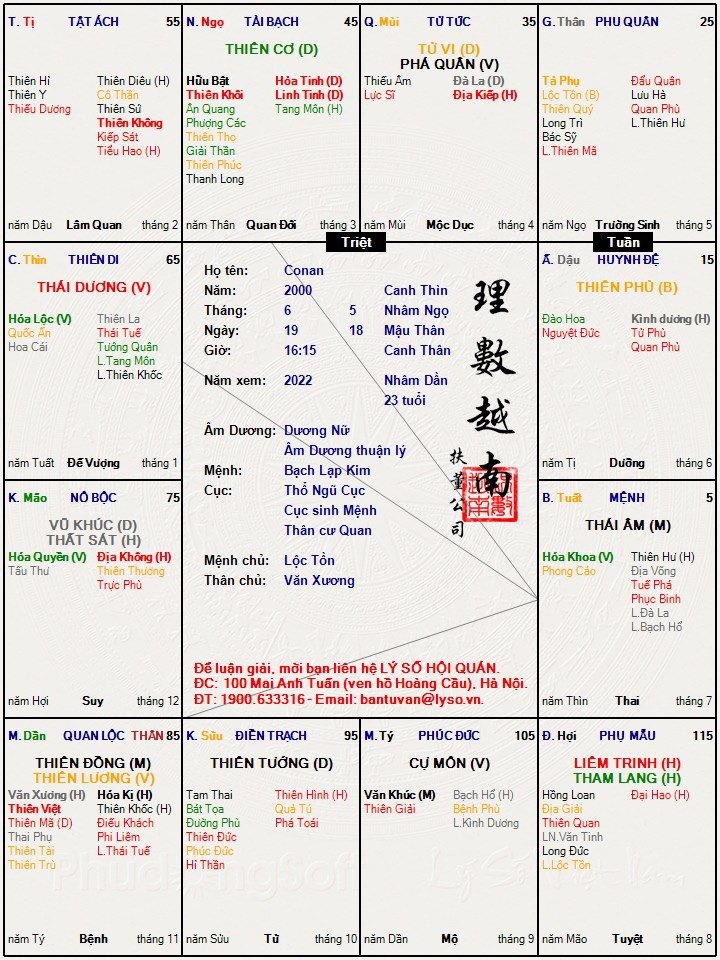 T. Tị TẬT ÁCH 55
Thiên Hỉ Thiên Diêu (H)
Thiên Y Cô Thần
Thiếu Dương Thiên Sứ
Thiên Không
Kiếp Sát
Tiểu Hao (H)
năm Dậu Lâm Quan tháng 2
N. Ngọ TÀI BẠCH 45
THIÊN CƠ (D)
Hữu Bật Hỏa Tinh (D)
Thiên Khôi Linh Tinh (D)
Ân Quang Tang Môn (H)
Phượng Các
Thiên Thọ
Giải Thần
Thiên Phúc
Thanh Long
năm Thân Quan Đới tháng 3
Q. Mùi TỬ TỨC 35
TỬ VI (D)
PHÁ QUÂN (V)
Thiếu Âm Đà La (D)
Lực Sĩ Địa Kiếp (H)
năm Mùi Mộc Dục tháng 4
G. Thân PHU QUÂN 25
Tả Phụ Đẩu Quân
Lộc Tồn (B) Lưu Hà
Thiên Quý Quan Phủ
Long Trì L.Thiên Hư
Bác Sỹ
L.Thiên Mã
năm Ngọ Trường Sinh tháng 5
Triệt
Tuần
C. Thìn THIÊN DI 65
THÁI DƯƠNG (V)
Hóa Lộc (V) Thiên La
Quốc Ấn Thái Tuế
Hoa Cái Tướng Quân
L.Tang Môn
L.Thiên Khốc
năm Tuất Đế Vượng tháng 1
Họ tên: Conan
Năm: 2000 Canh Thìn
Tháng: 6 5 Nhâm Ngọ
Ngày: 19 18 Mậu Thân
Giờ: 16:15 Canh Thân
Năm xem: 2022 Nhâm Dần
23 tuổi
Âm Dương: Dương Nữ
Âm Dương thuận lý
Mệnh: Bạch Lạp Kim
Cục: Thổ Ngũ Cục
Cục sinh Mệnh
Thân cư Quan
Mệnh chủ: Lộc Tồn
Thân chủ: Văn Xương
理數越南
扶董公司
Để luận giải, mời bạn liên hệ LÝ SỐ HỘI QUÁN.
ĐC: 100 Mai Anh Tuấn (ven hồ Hoàng Cầu), Hà Nội.
ĐT: 1900.633316 - Email: bantuvan@lyso.vn.
Ấ. Dậu HUYNH ĐỆ 15
THIÊN PHỦ (B)
Đào Hoa Kình dương (H)
Nguyệt Đức Tử Phù
Quan Phủ
năm Tị Dưỡng tháng 6
K. Mão NÔ BỘC 75
VŨ KHÚC (D)
THẤT SÁT (H)
Hóa Quyền (V) Địa Không (H)
Tấu Thư Thiên Thương
Trực Phù
năm Hợi Suy tháng 12
B. Tuất MỆNH 5
THÁI ÂM (M)
Hóa Khoa (V) Thiên Hư (H)
Phong Cáo Địa Võng
Tuế Phá
Phục Binh
L.Đà La
L.Bạch Hổ
năm Thìn Thai tháng 7
M. Dần QUAN LỘC THÂN 85
THIÊN ĐỒNG (M)
THIÊN LƯƠNG (V)
Văn Xương (H) Hóa Kị (H)
Thiên Việt Thiên Khốc (H)
Thiên Mã (D) Điếu Khách
Thai Phụ Phi Liêm
Thiên Tài L.Thái Tuế
Thiên Trù
năm Tý Bệnh tháng 11
K. Sửu ĐIỀN TRẠCH 95
THIÊN TƯỚNG (D)
Tam Thai Thiên Hình (H)
Bát Tọa Quả Tú
Đường Phù Phá Toái
Thiên Đức
Phúc Đức
Hỉ Thần
năm Sửu Tử tháng 10
M. Tý PHÚC ĐỨC 105
CỰ MÔN (V)
Văn Khúc (M) Bạch Hổ (H)
Thiên Giải Bệnh Phù
L.Kình Dương
năm Dần Mộ tháng 9
Đ. Hợi PHỤ MẪU 115
LIÊM TRINH (H)
THAM LANG (H)
Hồng Loan Đại Hao (H)
Địa Giải
Thiên Quan
LN.Văn Tinh
Long Đức
L.Lộc Tồn
năm Mão Tuyệt tháng 8
PhudongSoft